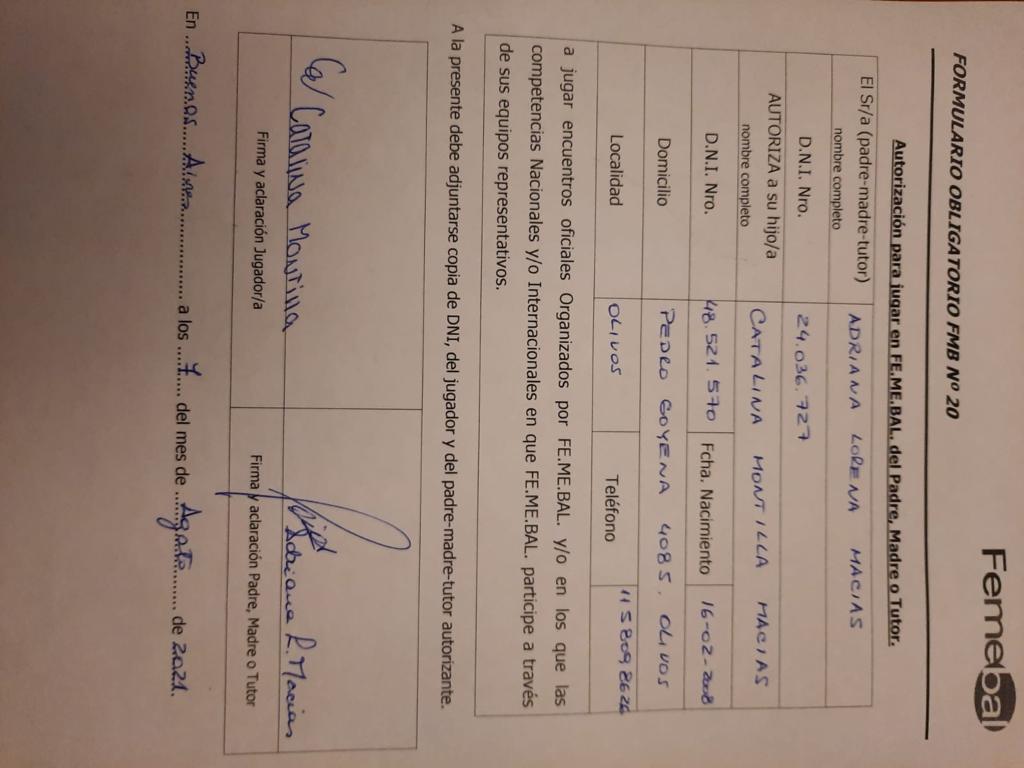 Femebal
FORMULARIO OBLIGATORIO FMB Nº 20
Autorización para jugar en FE.ME.BAL. del Padre, Madre o Tutor.
El Sr/a (padre-madre-tutor) nombre completo ADRIANA LORENA MACIAS
D.N.I. Nro. 24.036.727
AUTORIZA a su hijo/a nombre completo CATALINA MONTILLA MACIAS
D.N.I. Nro. 48.521.570 Fcha. Nacimiento 16-02-2008
Domicilio PEDRO GOYENA 4085. OLIVOS
Localidad OLIVOS Teléfono 1158098626
a jugar encuentros oficiales Organizados por FE.ME.BAL. y/o en los que las
competencias Nacionales y/o Internacionales en que FE.ME.BAL. participe a través
de sus equipos representativos.
A la presente debe adjuntarse copia de DNI, del jugador y del padre-madre-tutor autorizante.
Montilla Adriana L. Macias
Firma y aclaración Jugador/a Firma y aclaración Padre, Madre o Tutor
En ...Buenos Aires... a los ...7.... del mes de ...Agosto... de 2021.